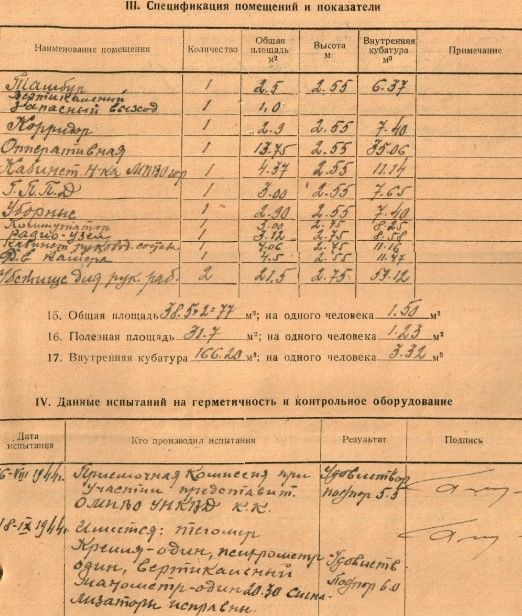 III. Спецификация помещений и показатели
Наименование помещения Количество Общая площадь м² Высота м Внутренняя кубатура м³ Примечание
Тамбур 1 2.5 2.55 6.37
Вертикальный
запасный выход 1 1,0
Корридор 1 2.9 2.55 7.40
Оперативная 1 13.75 2.55 35.06
Кабинет н-ка МПВО 1 4.37 2.55 11.14
Г.П.П.Д 1 3.00 2.55 7.65
Уборные 1 2.90 2.55 7.40
Коммутатор 1 3.00 2.75 8.25
Радио-узел 1 3.12 2.75 8.58
Кабинет руковод. состава 1 4.06 2.75 11.16
Ф.в камера 1 4.5 2.55 11.47
Убежище для рук. раб. 2 21,5 2.75
15. Общая площадь м²; на одного человека 1.50 м²
16. Полезная площадь 31.7 м²; на одного человека 1.23 м²
17. Внутренняя кубатура 166.20 м³; на одного человека 3.32 м³
IV. Данные испытаний на герметичность и контрольное оборудование
Дата испытания Кто производил испытания Результат Подпись
6-VIII 1944г. Приемочная Комиссия при Удовлетвор
участии представит. подпор 5.5
ОМПВО УНКВД К.К.
18-IX 1944г. Имеется: тягомер
Креля-один, психрометр- Удовлетв
один, вертикальный подпор 6.0
манометр-один 20.30 сигна-
лизаторы исправны.